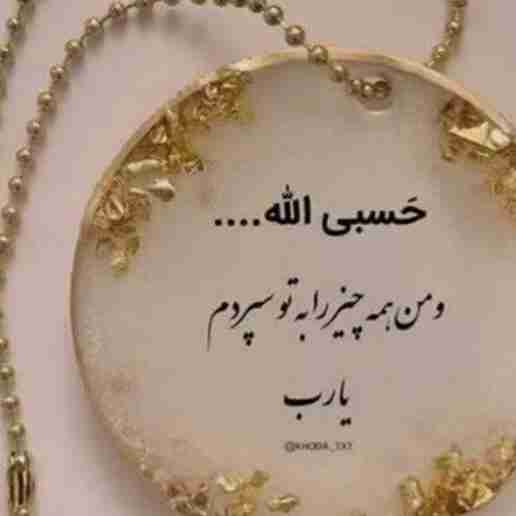 حَسبی الله....
و من همه چیز را به تو سپردم
یارب
@KHODA_TXT